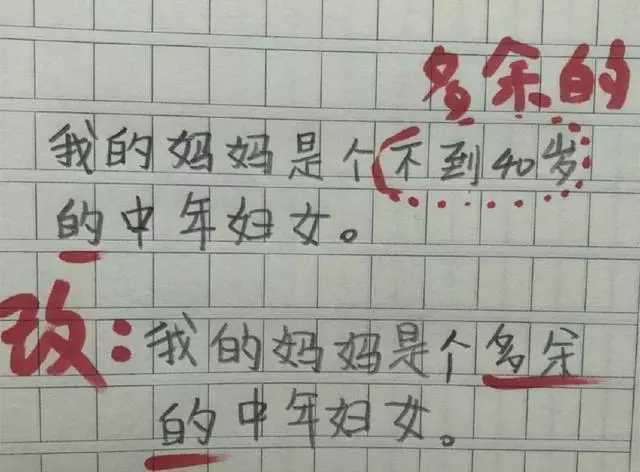 多余的
我的妈妈是个不到40岁
的中年妇女。
改：我的妈妈是个多余
的中年妇女。